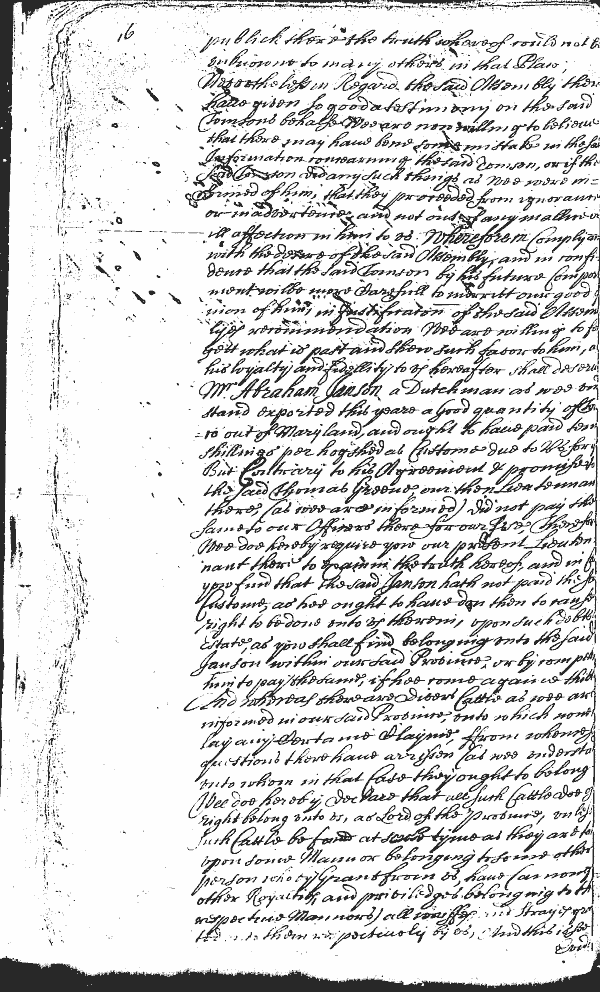 16
publick there the truth whereof could not b
unknowne to many others, in that Place
Neverthelesse in Regard the said Assembly then
have given so good a testimony on the said
Tomsons behalfe Wee are now willing to believe
that there may have bene some mistake in the sa
Information concearning the said Tomson, or if the
said Tomson did any such things as Wee were in=
formed of him, that they proceeded from ignorance
or inadvertence and not out of any mallice o
ill affection in him to us. Wherefore in Complyan
with the desire of the said Assembly, and in confi
dence that the said Tomson by his future Compor
ment wilbe more Carefull to merritt our good
nion of him, in Justificaton of the said Assem
blyes recommendation Wee are willing to fo
gett what is past and shew such favor to him, a
his loyalty and fidellity to us hereafter shall deserv
Mr Abraham Janson a Dutchman as wee und
stand exported this yeare a good quantity of To
=co out of Maryland, and ought to have paid tenn
shillings per hogshed as Custome due to Us for y
But Contrary to his Agreement & promise
the said Thomas Greene our then Lieutennan
there, (as wee are informed) did not pay the
same to our Officers there for our Use Therefor
Wee doe hereby require yow our present Lieuten
nant there to examin the truth hereof, and in C
yow find that the said Janson hath not paid the s
Custome, as hee ought to have don then to cause
right to be done unto us therein, upon such debts
estate, as yow shall find belonging unto the said
Janson within our said Province, or by compell
him to pay the same, if hee come againe thith
And whereas there are divers Cattle as wee are
informed in our said Province, unto which none
lay any Certaine Clayme, from whence
questions there have arrisen (as wee understa
unto whom in that Case they ought to belong
Wee doe hereby Declare that all such Cattle doe of
right belong unto us, as Lord of the Province, unless
such Cattle be found at such tyme as they are to
upon some Mannor belonging to some other
person who by Grant from us, have (among
other Royalties and priviledges belonging to th
respective Mannors) all waiffes and Strayes gr
ted unto them respectively by us, And this is to